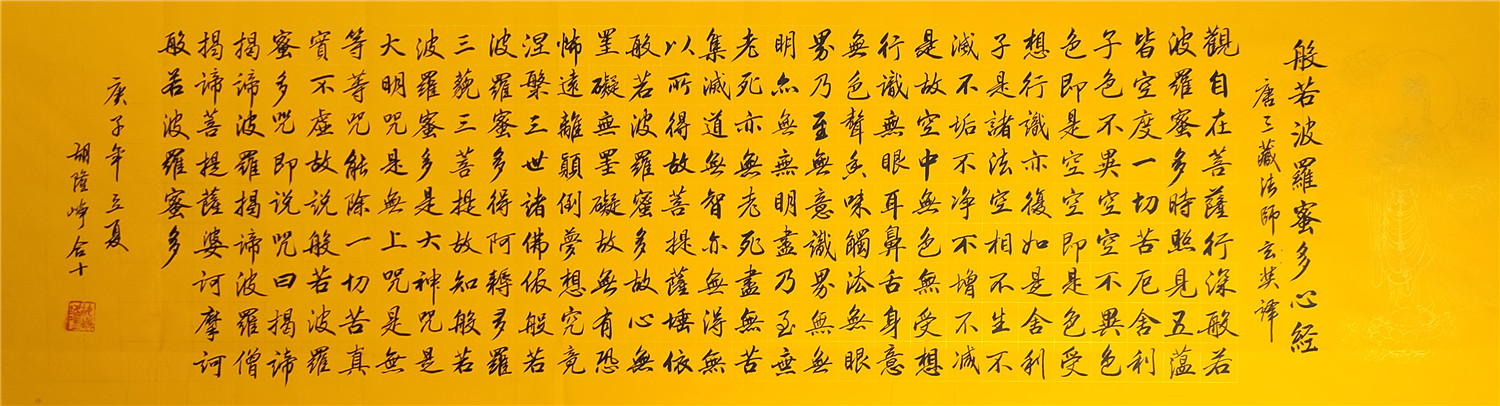 般若波羅蜜多心經
唐三藏法師玄奘譯
觀自在菩薩行深般若
波羅蜜多時照見五蘊
皆空度一切苦厄舍利
子色不異空空不異色
色即是空空即是色受
想行識亦復如是舍利
子是諸法空相不生不
滅不垢不淨不增不減
是故空中無色無受想
行識無眼耳鼻舌身意
無色聲香味觸法無眼
界乃至無意識界無無
明亦無無明盡乃至無
老死亦無老死盡無苦
集滅道無智亦無得無
以所得故菩提薩埵依
般若波羅蜜多故心無
罣礙無罣礙故無有恐
怖遠離顛倒夢想究竟
涅槃三世諸佛依般若
波羅蜜多得阿耨多羅
三藐三菩提故知般若
波羅蜜多是大神咒是
大明咒是無上咒是無
等等咒能除一切苦真
實不虛故說般若波羅
蜜多咒即說咒曰揭諦
揭諦波羅揭諦波羅僧
揭諦菩提薩婆訶摩訶
般若波羅蜜多
庚子年立夏
胡隆崢合十